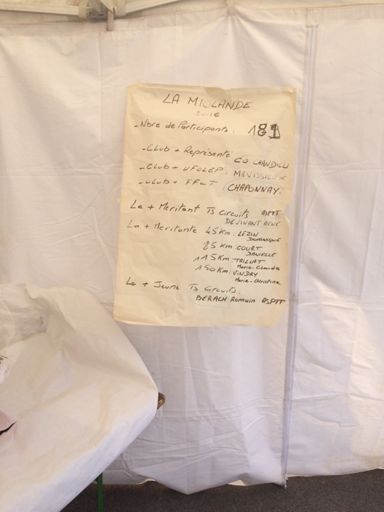 LA MIOLANDE
2016
- Nbre de Participants : 181
- Club + Représenté CO CHANDIEU
- Club + UFOLEP :
- Club + FFCT CHAPONNAY.
Le + Méritant Ts Circuits ASPTT
La + Méritante 45 Km. LEZIN
Dominique
85 Km COURT
DANIELLE
115 Km. TRILLAT
Marie-Claude
150 Km. VINDRY
Marie-Christine
Le + Jeune Ts Circuits.
BERACH Romain ASPTT